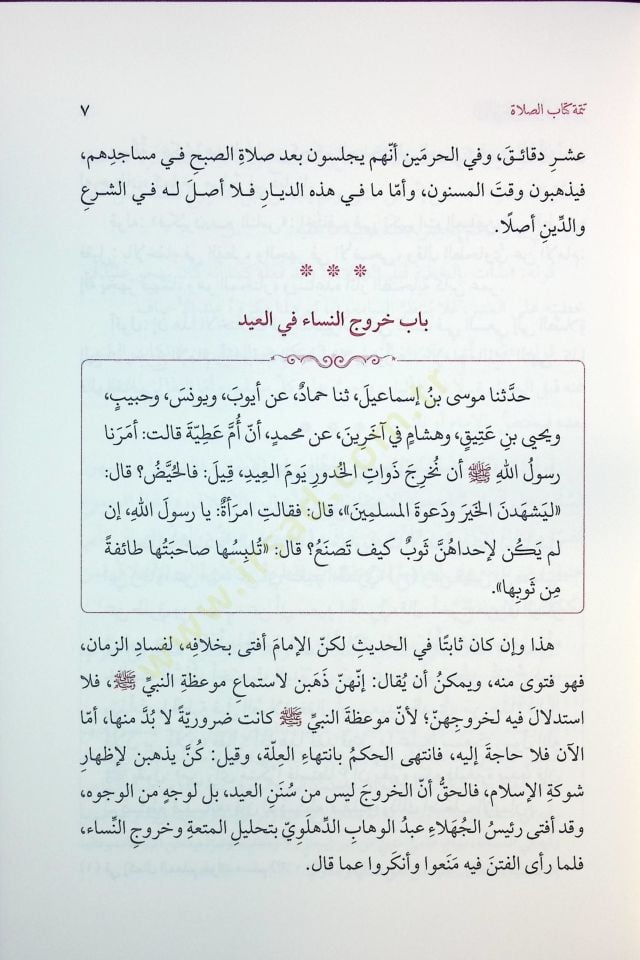 تتمة كتاب الصلاة ٧
عشرِ دقائقَ، وفي الحرمَين أنّهم يجلسون بعد صلاةِ الصبحِ في مساجدِهم،
فيذهبون وقتَ المسنون، وأمّا ما في هذه الديارِ فلا أصلَ له في الشرعِ
والدِّينِ أصلًا.
* * *
باب خروج النساء في العيد
حدَّثنا موسى بنُ إسماعيلَ، ثنا حمادٌ، عن أيوبَ، ويونسَ، وحبيبٍ،
ويحيى بنِ عَتِيقٍ، وهشامٍ في آخَرِينَ، عن محمدٍ، أنّ أُمَّ عَطِيّةَ قالت: أمَرَنا
رسولُ اللهِ ﷺ أن نُخرِجَ ذَواتِ الخُدورِ يَومَ العِيدِ، قِيلَ: فالحُيَّضُ؟ قال:
«ليَشهَدنَ الخَيرَ ودَعوةَ المسلمِينَ»، قال: فقالتِ امرَأةٌ: يا رسولَ اللهِ، إن
لم يَكُن لإحداهُنَّ ثَوبٌ كيفَ تَصنَعُ؟ قال: «تُلبِسُها صاحبَتُها طائفةً
مِن ثَوبِها».
هذا وإن كان ثابتًا في الحديثِ لكنّ الإمامَ أفتى بخلافِه، لفسادِ الزمان،
فهو فتوى منه، ويمكنُ أن يُقال: إنهنّ ذَهَبن لاستماع موعظةِ النبيِّ ﷺ، فلا
استدلالَ فيه لخروجِهنّ؛ لأنّ موعظةَ النبيِّ ﷺ كانت ضروريّةً لا بُدَّ منها، أمّا
الآن فلا حاجةَ إليه، فانتهى الحكمُ بانتهاءِ العِلّة، وقيل: كُنَّ يذهبن لإظهارِ
شوكةِ الإسلام، فالحقُّ أنّ الخروجَ ليس من سُنَنِ العيد، بل لوجهٍ من الوجوه،
وقد أفتى رئيسُ الجُهَلاءِ عبدُ الوهابِ الدِّهلَوِيّ بتحليلِ المتعةِ وخروجِ النِّساء،
فلما رأى الفتنَ فيه مَنَعوا وأنكَروا عما قال.